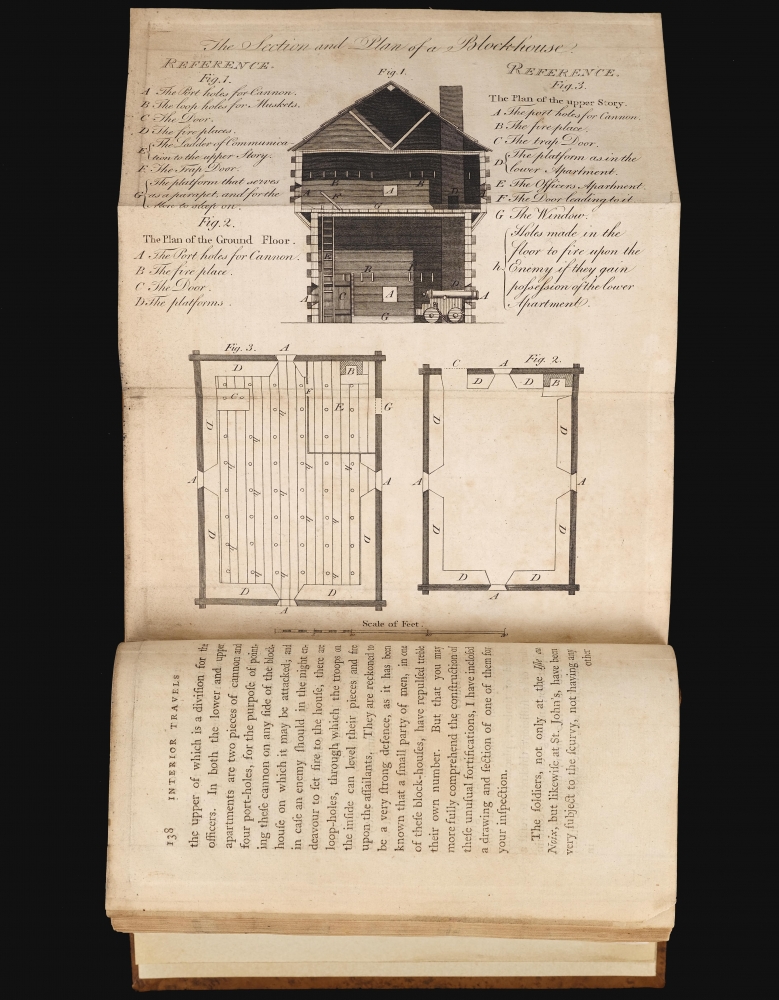 The Section and Plan of a Blockhouse.
REFERENCE.
Fig.1.
A The Port holes for Cannon.
B The loop holes for Muskets.
C The Door.
D The fire places.
E {The Ladder of Communica-
tion to the upper Story.
F The Trap Door.
G {The platform that serves
as a parapet, and for the
Men to sleep on.
Fig.2.
The Plan of the Ground Floor.
A The Port holes for Cannon.
B The fire place.
C The Door.
D The platforms.
Fig.1.
REFERENCE.
Fig.3.
The Plan of the upper Story.
A The port holes for Cannon.
B The fire place.
C The trap Door.
D {The platform as in the
lower Apartment.
E The Officers Apartment
F The Door leading to it
G The Window.
h. {Holes made in the
floor to fire upon the
Enemy if they gain
possession of the lower
Apartment.
Fig. 3.
Fig. 2.
Scale of Feet.
138 INTERIOR TRAVELS
the upper of which is a diviſion for the
officers. In both the lower and upper
apartments are two pieces of cannon and
four port-holes, for the purpoſe of point-
ing theſe cannon on any ſide of the block-
houſe on which it may be attacked; and
in caſe an enemy ſhould in the night en-
deavour to ſet fire to the houſe, there are
loop-holes, through which the troops on
the inſide can level their pieces and fire
upon the aſſailants. They are reckoned to
be a very ſtrong defence, as it has been
known that a ſmall party of men, in one
of theſe block-houſes, have repulſed treble
their own number. But that you may
more fully comprehend the conſtruction of
theſe unuſual fortifications, I have incloſed
a drawing and ſection of one of them for
your inſpection.
The ſoldiers, not only at the Iſle au
Noix, but likewiſe at St. John's, have been
very ſubject to the ſcurvy, not having any
other